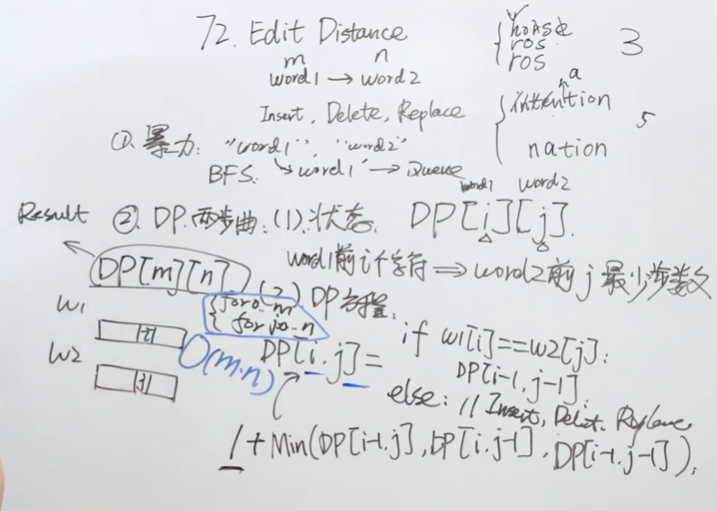 72. Edit Distance
m n
word1 → word2
Insert, Delete, Replace
horse
ros
ros
3
a
intention
nation
5
①. 暴力: "word1", "word2"
BFS. word1' → Queue
word1 word2
Result ②. DP. 两步曲: (1). 状态. DP[i][j].
word1前i个字符 ⇒ word2前j最少步数
DP[m][n] (2) DP方程:
for 0..m
for j 0..n
O(m.n)
w1
w2
DP[i.j] =
if w1[i]==w2[j]:
DP[i-1,j-1]
else: // Insert, Delet, Replace
1 + Min(DP[i-1,j], DP[i,j-1], DP[i-1,j-1]).